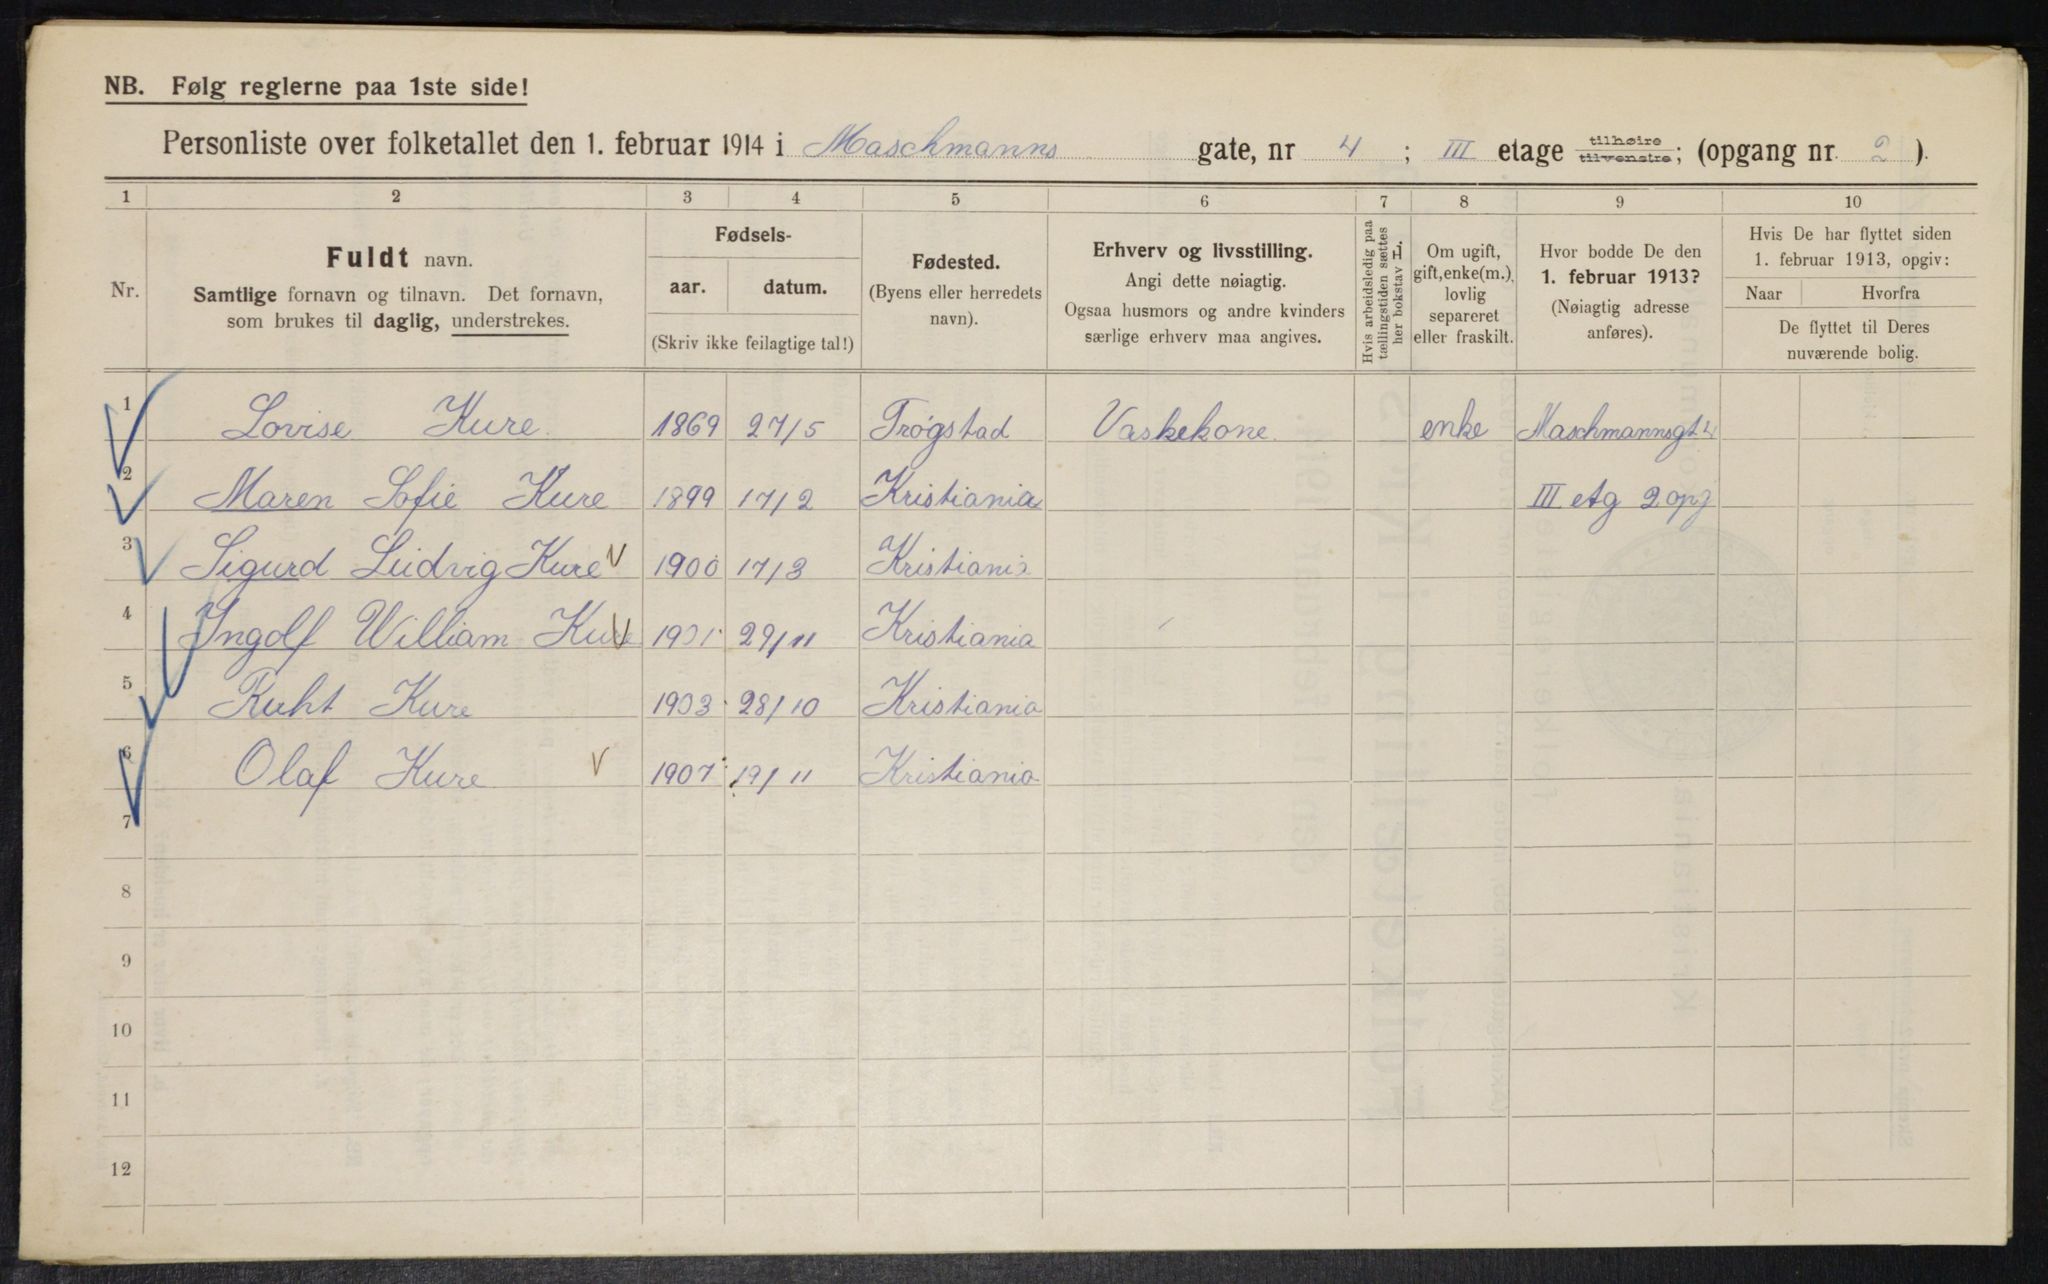 NB. Følg reglerne paa 1ste side!
Personliste over folketallet den 1. februar 1914 i Maschmanns gate, nr 4 ; III etage tilhøire tilvenstre; (opgang nr. 2 ).
1 2 3 4 5 6 7 8 9 10
Nr.
Fuldt navn.
Samtlige fornavn og tilnavn. Det fornavn,
som brukes til daglig, understrekes.
Fødsels-
aar. datum.
(Skriv ikke feilagtige tal!)
Fødested.
(Byens eller herredets
navn).
Erhverv og livsstilling.
Angi dette nøiagtig.
Ogsaa husmors og andre kvinders
særlige erhverv maa angives.
Hvis arbeidsledig paa
tællingstiden sættes
her bokstav L.
Om ugift,
gift, enke(m.),
lovlig
separeret
eller fraskilt.
Hvor bodde De den
1. februar 1913?
(Nøiagtig adresse
anføres).
Hvis De har flyttet siden
1. februar 1913, opgiv:
Naar Hvorfra
De flyttet til Deres
nuværende bolig.
1 Lovise Kure 1869 27/5 Trøgstad Vaskekone enke Maschmannsgt 4
2 Maren Sofie Kure 1899 17/2 Kristiania III etg 2 opg
3 Sigurd Ludvig Kure 1900 17/3 Kristiania
4 Ingolf William Kure 1901 29/11 Kristiania
5 Ruht Kure 1903 28/10 Kristiania
6 Olaf Kure 1907 19/11 Kristiania
7
8
9
10
11
12